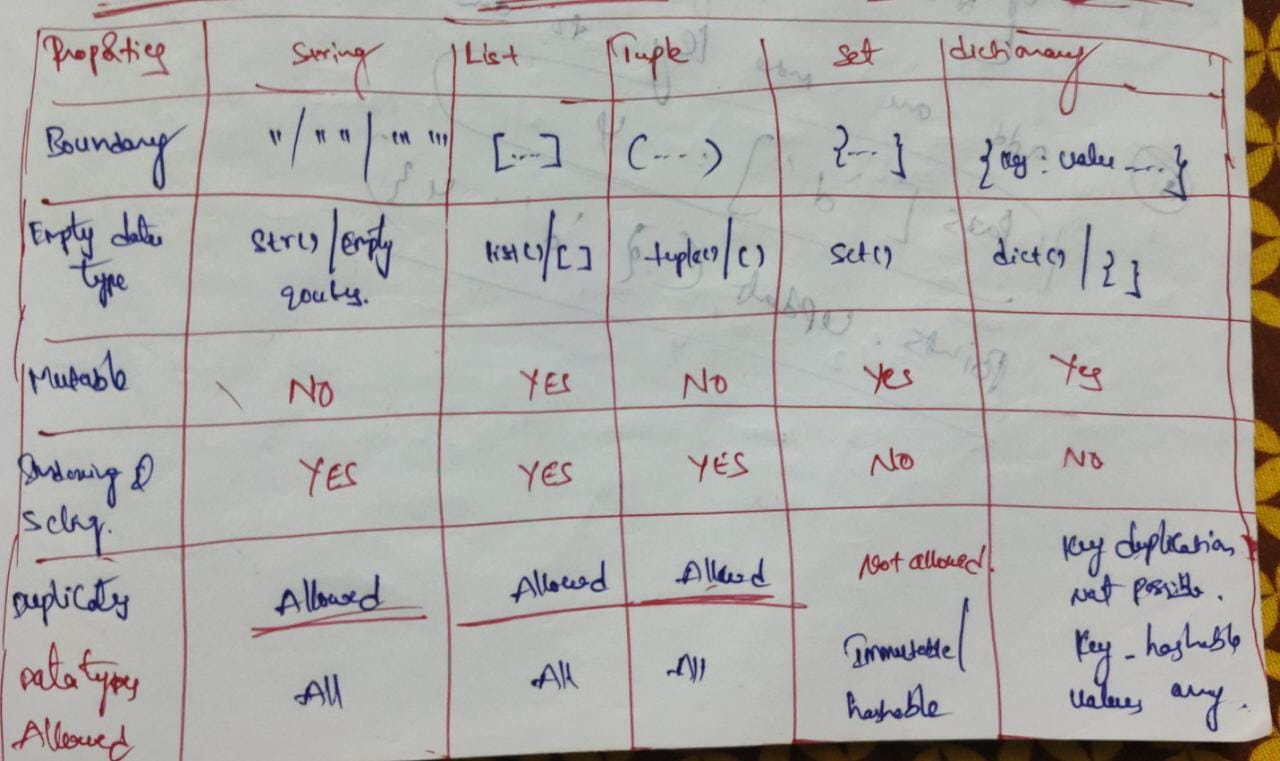 Properties String List Tuple set dictionary
Boundary '' / " " / ''' ''' [....] (....) {....} {key : value ....}
Empty data type str() / Empty qoutes. list() / [] tuple() / () set() dict() / {}
Mutable NO YES NO Yes Yes
Indexing & Slicing. YES YES YES NO NO
Duplicates Allowed Allowed Allowed Not allowed. Key duplication not possible.
Data types Allowed All All All Immutable / hashable Key - hashable values any.